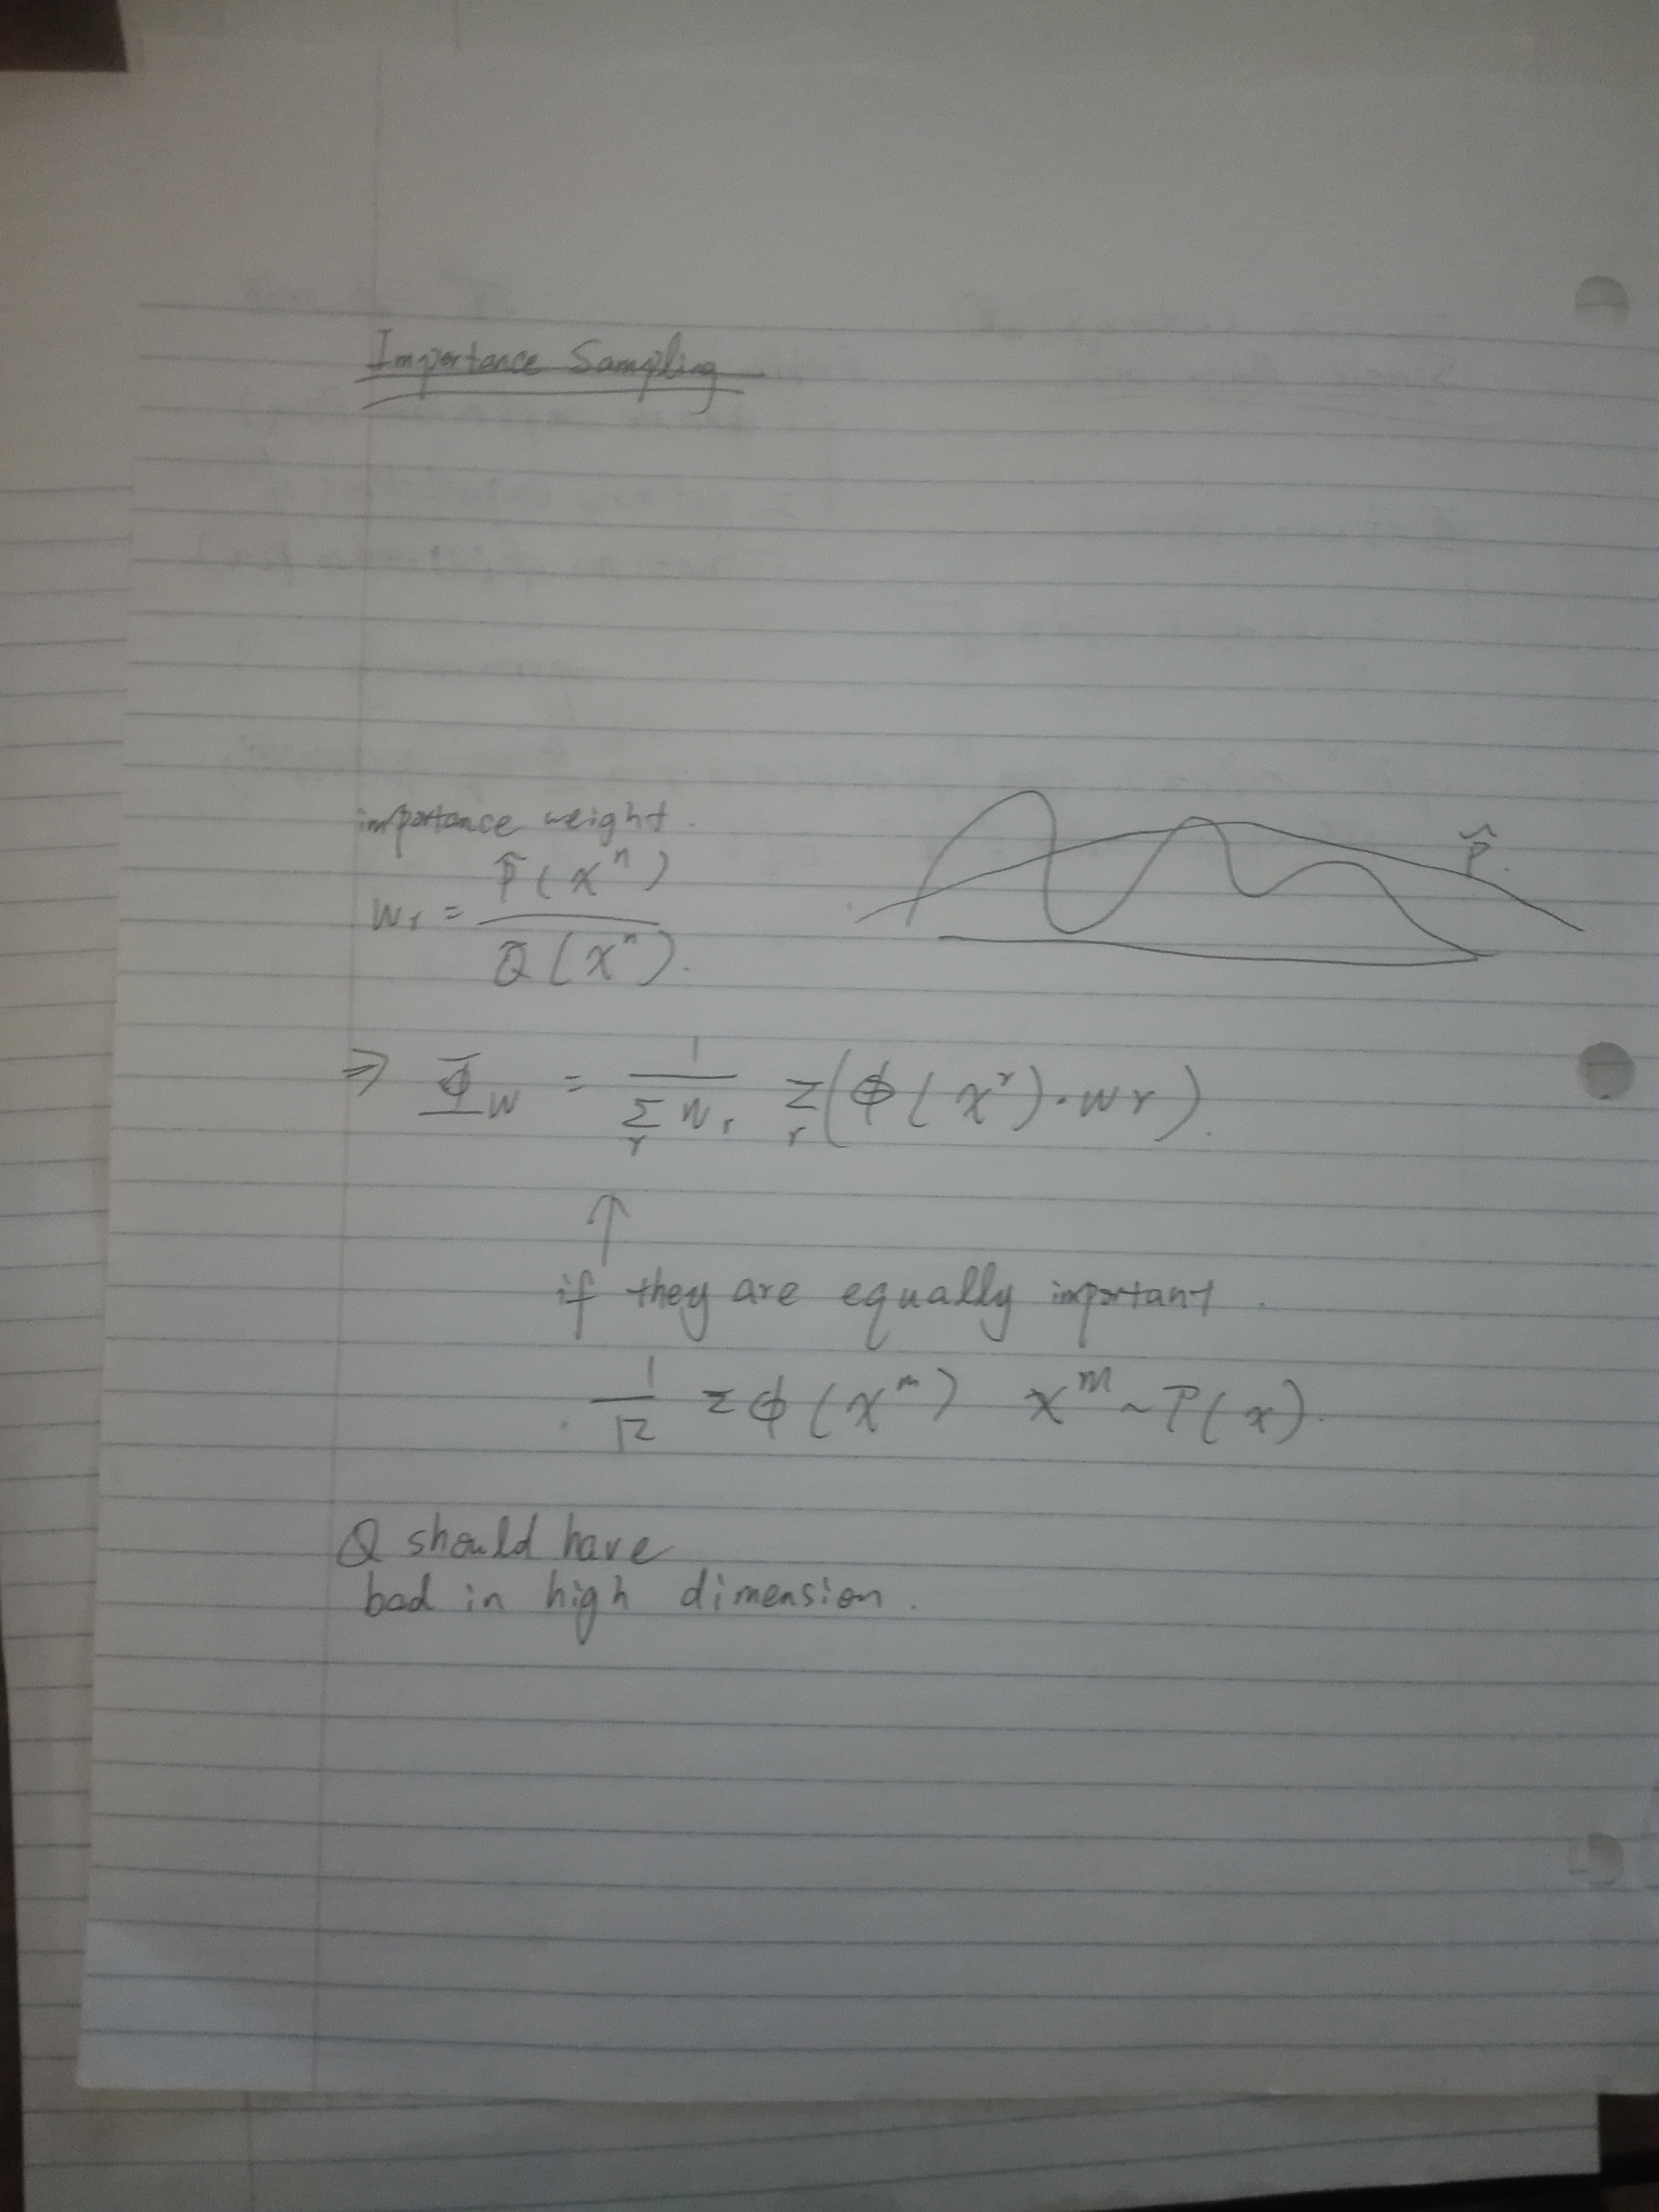 Importance Sampling
importance weight.
P̃(xⁿ)
wr = ―――
Q(xⁿ).
P̃.
⇒ Φ̄w = 1/(Σr wr) Σr(ϕ(xʳ)·wr).
↑
if they are equally important.
1/R Σϕ(xᵐ) xᵐ~P(x).
Q should have
bad in high dimension.